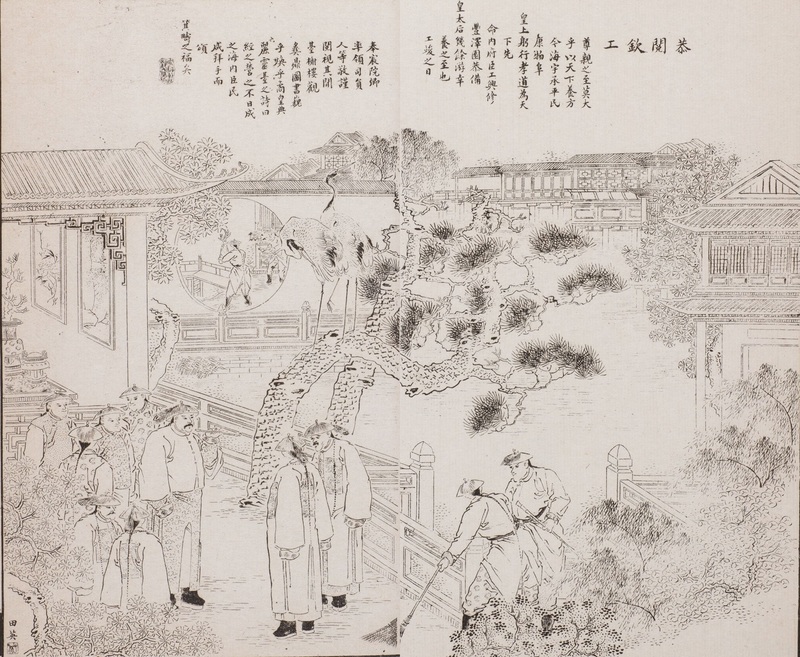 恭閱欽工
尊親之至莫大
乎以天下養方
今海宇承平民
康物阜
皇上躬行孝道為天
下先
命內府臣工興修
豐澤園恭備
皇太后幾餘游幸
養之至也
工竣之日
奉宸院卿
率領司員
人等敬謹
閱視其間
臺榭樓觀
彝鼎圖書巍
乎煥乎矞皇典
麗靈臺之詩曰
經之營之不日成
之海內臣民
咸拜手而
頌
箕疇之福矣
田英